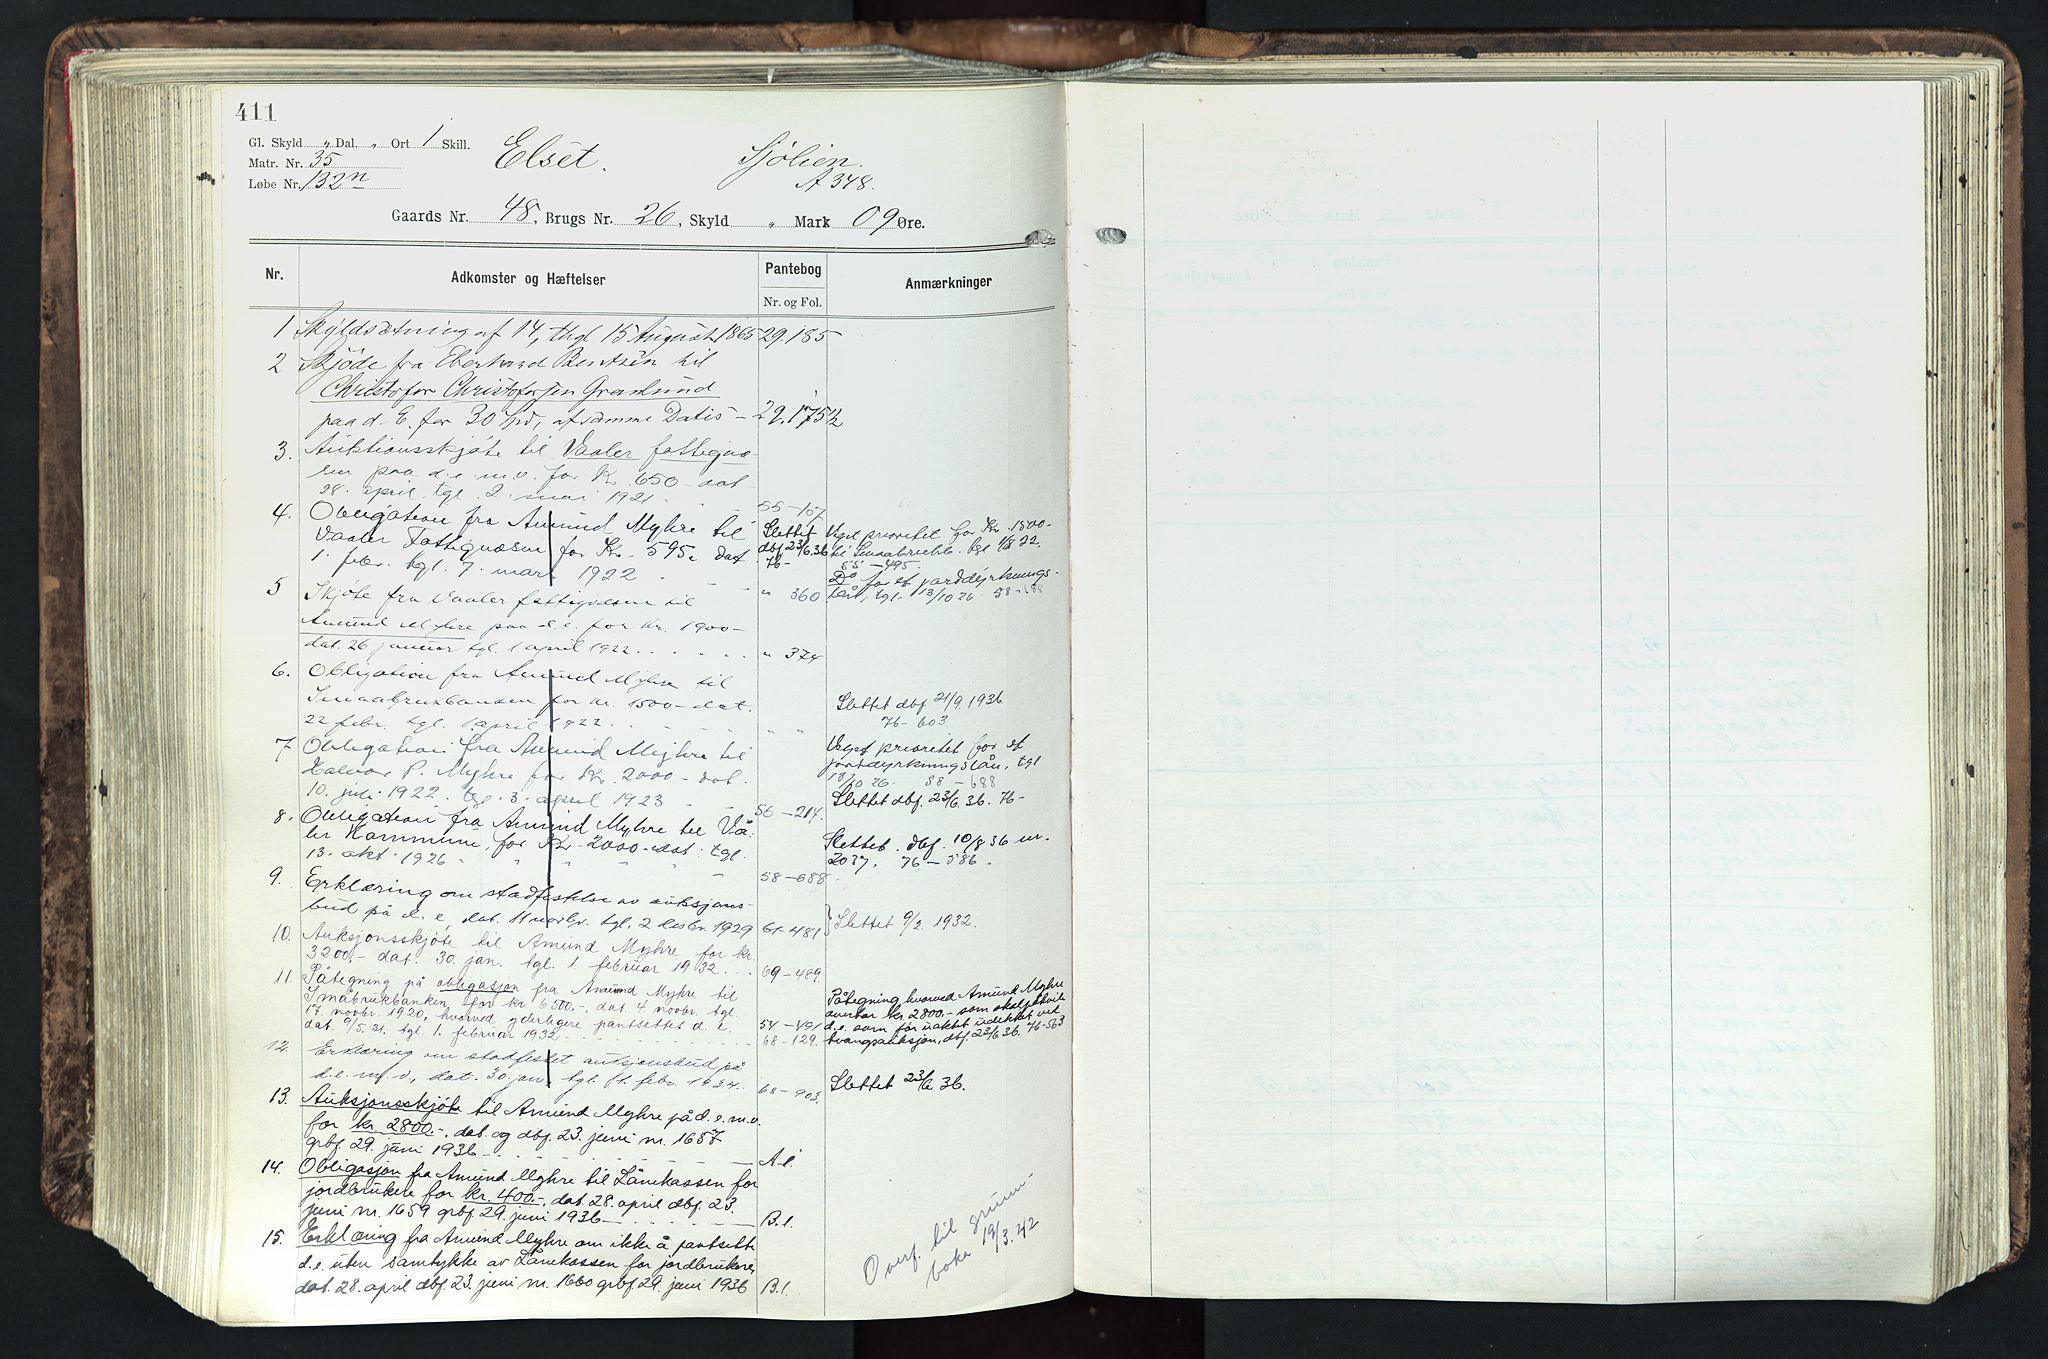 411
Gl. Skyld „ Dal. „ Ort 1 Skill.
Matr. Nr. 35
Løbe Nr. 132n
Elset.
Sjølien.
A 348.
Gaards Nr. 48, Brugs Nr. 26, Skyld „ Mark 09 Øre.
Nr.
Adkomster og Hæftelser
Pantebog
Nr. og Fol.
Anmærkninger
1 Skyldsætning af 14, thgl 15 August 1865 29.185
2 Skjøde fra Eberhard Bentsen til
Christofer Christofersen Granlund
paa d. E. for 30 Spd, af samme Datis - 29.175½
3. Auktionsskjøte til Vaaler fattigvæ-
sen paa d.e. m.v. for Kr. 650 - dat
28. april tgl. 2. mai 1921 55-107
4. Obligation fra Amund Myhre til
Vaaler Fattigvæsen for Kr. 595. dat
1. febr. tgl. 7. mars 1922 " 360
Slettet
dbf 23/6.36
76-
Veget prioritet for Kr. 1500-
til Smaabrukb. tgl 1/4 22.
55-495.
Do for et jorddyrknings-
lån, tgl. 13/10 26 58-688
5 Skjøte fra Vaaler fattigvæsen til
Amund Myhre paa d.e. for Kr. 1900-
dat. 26 januar tgl. 1 april 1922 " 374
6. Obligation fra Amund Myhre til
Smaabrukbanken for Kr. 1500 - dat.
22 febr. tgl. 1 april 1922 " "
Slettet dbf 21/9 1936
76-603
7 Obligation fra Amund Myhre til
Halvor P. Myhre for Kr. 2000 - dat.
10. juli 1922. tgl. 3. april 1923 56-214.
Veget prioritet for et
jorddyrkningslån, tgl
13/10 26. 58-688
Slettet dbf. 23/6.36. 76-
8. Obligation fra Amund Myhre til Vå-
ler Kommune, for Kr. 2000 - dat. tgl.
13. okt 1926 58-688.
Slettet. dbf. 10/8 36 nr.
2037. 76-586.
9. Erklæring om stadfestelse av auksjons-
bud på d. e. dat. 11 novbr. tgl. 2 desbr. 1929 61-481
} Slettet 9/2 1932.
10. Auksjonsskjøte til Amund Myhre for kr.
3200,- dat. 30. jan. tgl. 1. februar 1932 69-489.
11. Påtegning på obligasjon fra Amund Myhre til
Småbrukbanken for kr 6500,-, dat. 4. novbr. tgl.
17. novbr. 1920, hvorved yderligere pantsettes d. e.
dat. 9/5.31. tgl. 1. februar 1932 54-491
68-129.
Påtegning hvorved Amund Myhre
overtar kr. 2800.- som skal hvile
d.e. som for uaktet udekket ved
tvangsauksjon, dbf. 23/6 36. 76-563
12. Erklæring om stadfestet auksjonsbud på
d.e. m.v., dat. 30 jan. tgl. 11. febr. 1934. 68-903.
Slettet 23/6 36.
13. Auksjonsskjøte til Amund Myhre på d. e. m.v.
for kr. 2800.-, dat. og dbf. 23. juni nr. 1657
grbf. 29. juni 1936 A 1.
14. Obligasjon fra Amund Myhre til Lånekassen for
jordbrukere for kr. 400.-, dat. 28. april dbf. 23.
juni nr. 1659 grbf. 29. juni 1936 B.1.
15. Erklæring fra Amund Myhre om ikke å pantsette
d.e. uten samtykke av Lånekassen for jordbrukere,
dat. 28. april dbf. 23. juni nr. 1660 grbf. 29. juni 1936 B.1.
Overf. til grunn-
boka 19/3.42